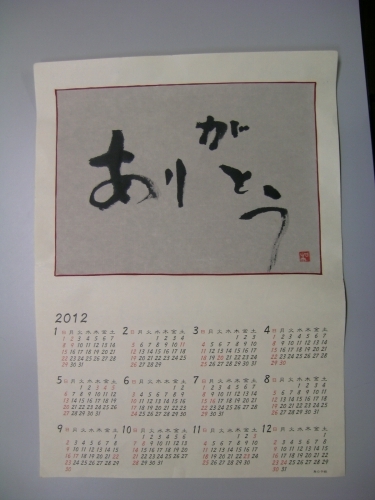 ありがとう
2012
1 日 月 火 水 木 金 土
1 2 3 4 5 6 7
8 9 10 11 12 13 14
15 16 17 18 19 20 21
22 23 24 25 26 27 28
29 30 31
2 日 月 火 水 木 金 土
1 2 3 4
5 6 7 8 9 10 11
12 13 14 15 16 17 18
19 20 21 22 23 24 25
26 27 28 29
3 日 月 火 水 木 金 土
1 2 3
4 5 6 7 8 9 10
11 12 13 14 15 16 17
18 19 20 21 22 23 24
25 26 27 28 29 30 31
4 日 月 火 水 木 金 土
1 2 3 4 5 6 7
8 9 10 11 12 13 14
15 16 17 18 19 20 21
22 23 24 25 26 27 28
29 30
5 日 月 火 水 木 金 土
1 2 3 4 5
6 7 8 9 10 11 12
13 14 15 16 17 18 19
20 21 22 23 24 25 26
27 28 29 30 31
6 日 月 火 水 木 金 土
1 2
3 4 5 6 7 8 9
10 11 12 13 14 15 16
17 18 19 20 21 22 23
24 25 26 27 28 29 30
7 日 月 火 水 木 金 土
1 2 3 4 5 6 7
8 9 10 11 12 13 14
15 16 17 18 19 20 21
22 23 24 25 26 27 28
29 30 31
8 日 月 火 水 木 金 土
1 2 3 4
5 6 7 8 9 10 11
12 13 14 15 16 17 18
19 20 21 22 23 24 25
26 27 28 29 30 31
9 日 月 火 水 木 金 土
1
2 3 4 5 6 7 8
9 10 11 12 13 14 15
16 17 18 19 20 21 22
23 24 25 26 27 28 29
30
10 日 月 火 水 木 金 土
1 2 3 4 5 6
7 8 9 10 11 12 13
14 15 16 17 18 19 20
21 22 23 24 25 26 27
28 29 30 31
11 日 月 火 水 木 金 土
1 2 3
4 5 6 7 8 9 10
11 12 13 14 15 16 17
18 19 20 21 22 23 24
25 26 27 28 29 30
12 日 月 火 水 木 金 土
1
2 3 4 5 6 7 8
9 10 11 12 13 14 15
16 17 18 19 20 21 22
23 24 25 26 27 28 29
30 31